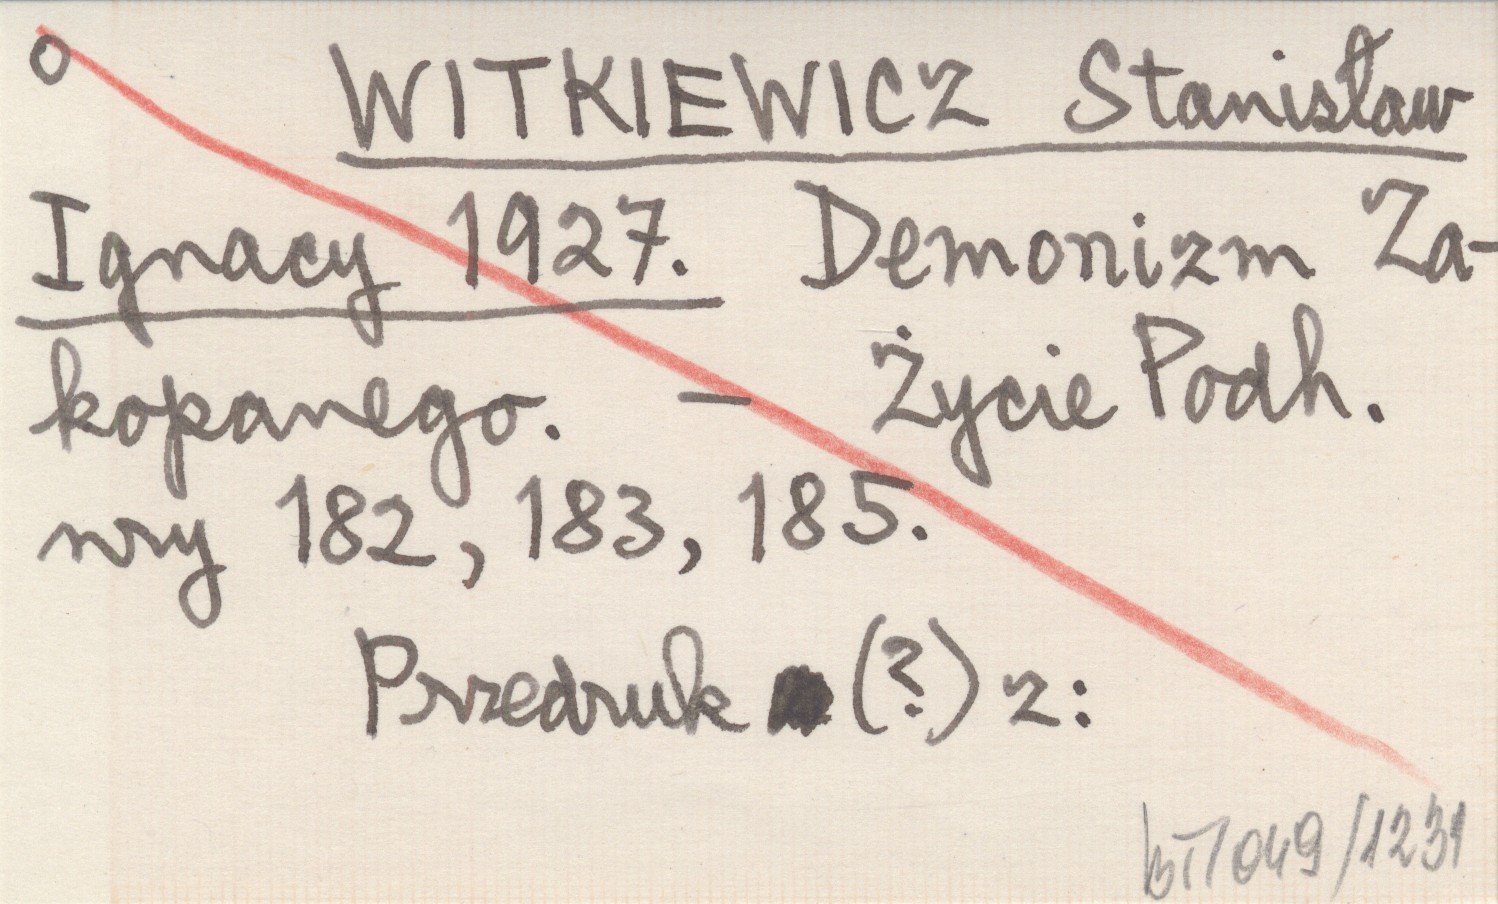 o WITKIEWICZ Stanisław
Ignacy 1927. Demonizm Za-
kopanego. — Życie Podh.
nry 182, 183, 185.
Przedruk (?) z:
049/1231